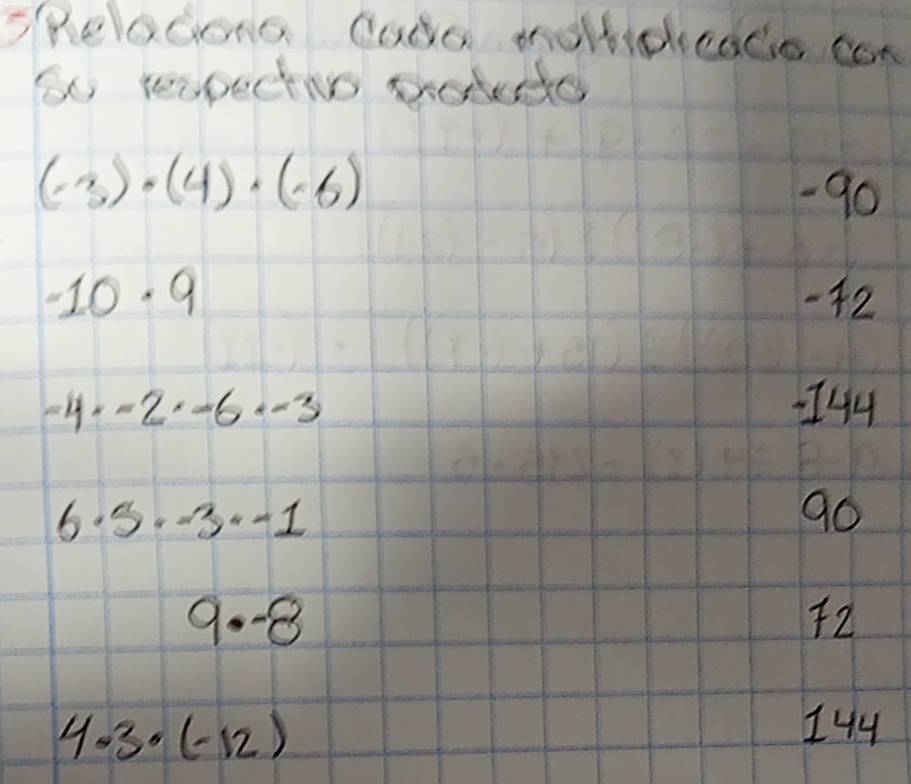 3 Relaciona Cada multiplicacio con
su respectivo producto
(-3)·(4)·(-6) -90
-10·9 -72
-4·-2·-6·-3 -144
6·5·-3·-1 90
9·-8 72
4·3·(-12) 144